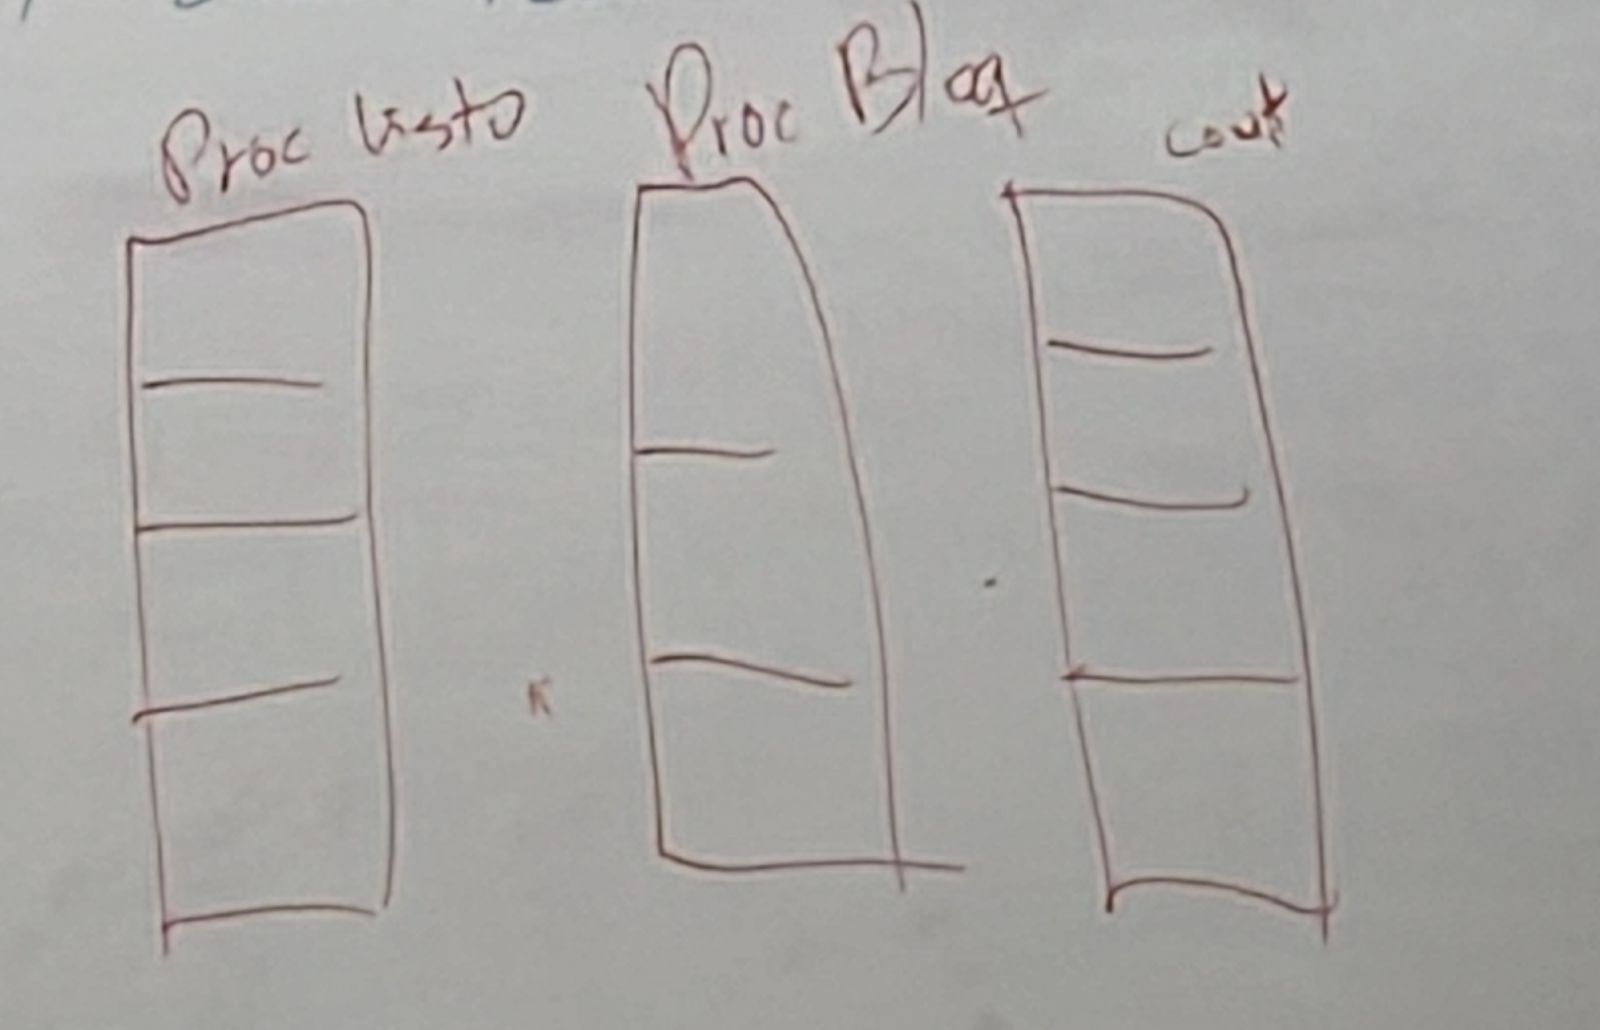 Proc listo
Proc Bloq
cont